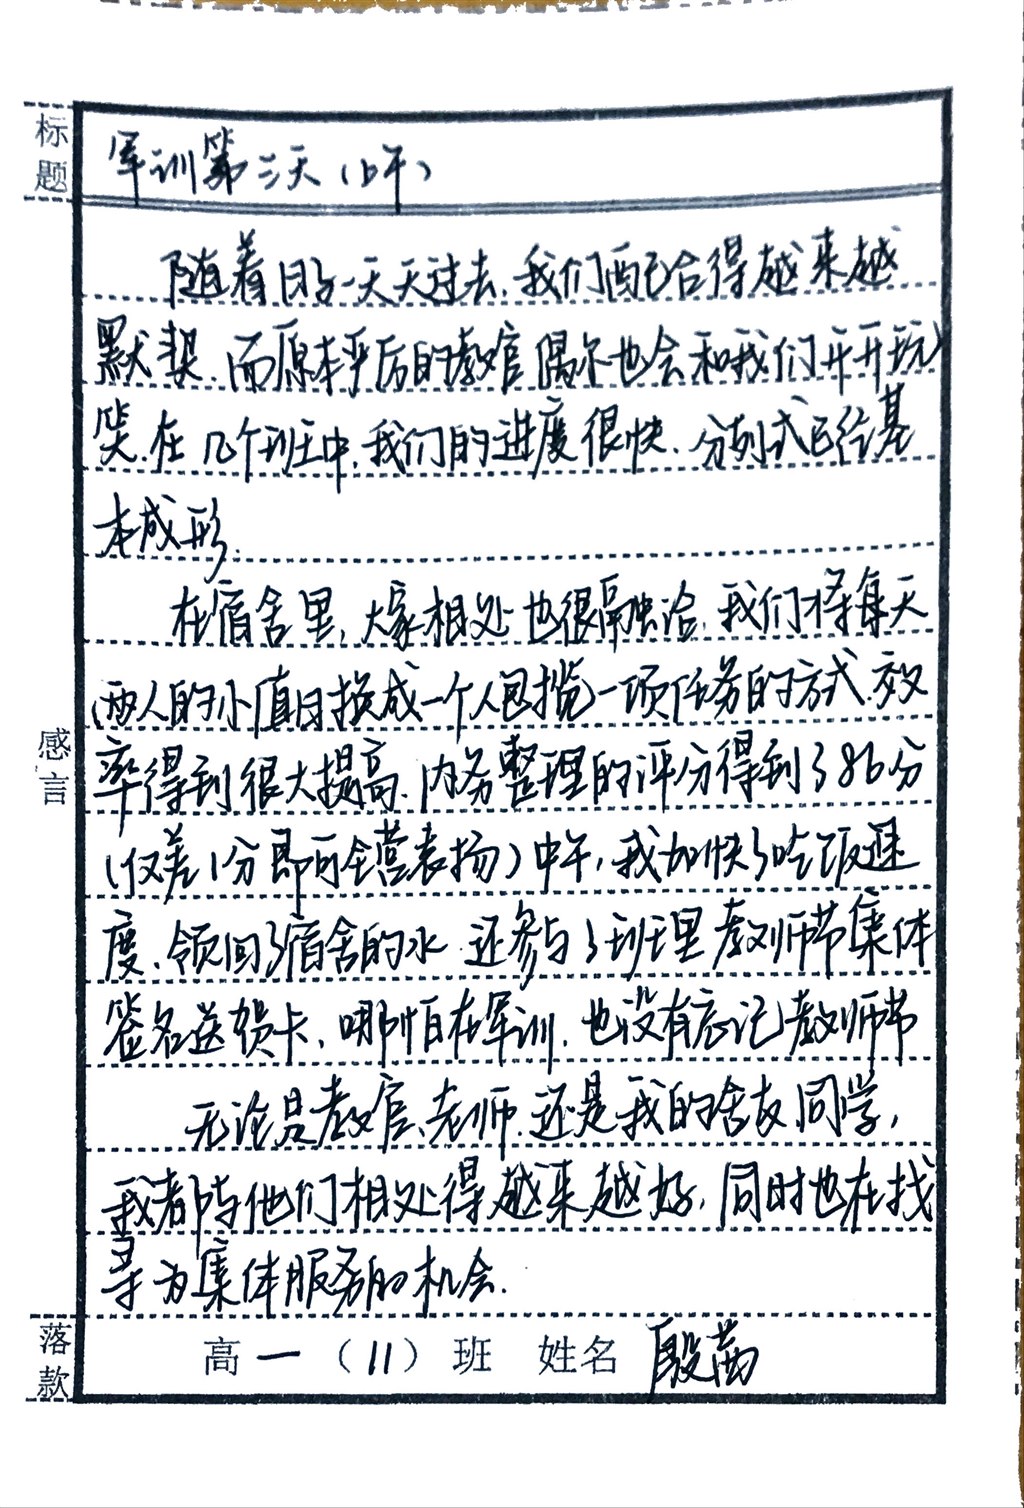 标题
军训第三天（上午）
随着日子一天天过去，我们配合得越来越
默契，而原本严厉的教官偶尔也会和我们开开玩
笑，在几个班中，我们的进度很快，分列式已经基
本成形。
在宿舍里，大家相处也很融洽，我们将每天
两人的小值日换成一个人包揽一项任务的方式，效
率得到很大提高，内务整理的评分得到了86分
（仅差1分即可全营表扬）中午，我加快了吃饭速
度，领回了宿舍的水，还参与了班里教师节集体
签名送贺卡，哪怕在军训，也没有忘记教师节
感言
无论是教官、老师，还是我的舍友、同学，
我都与他们相处得越来越好，同时也在找
寻为集体服务的机会。
落款
高一（11）班 姓名 殷茜